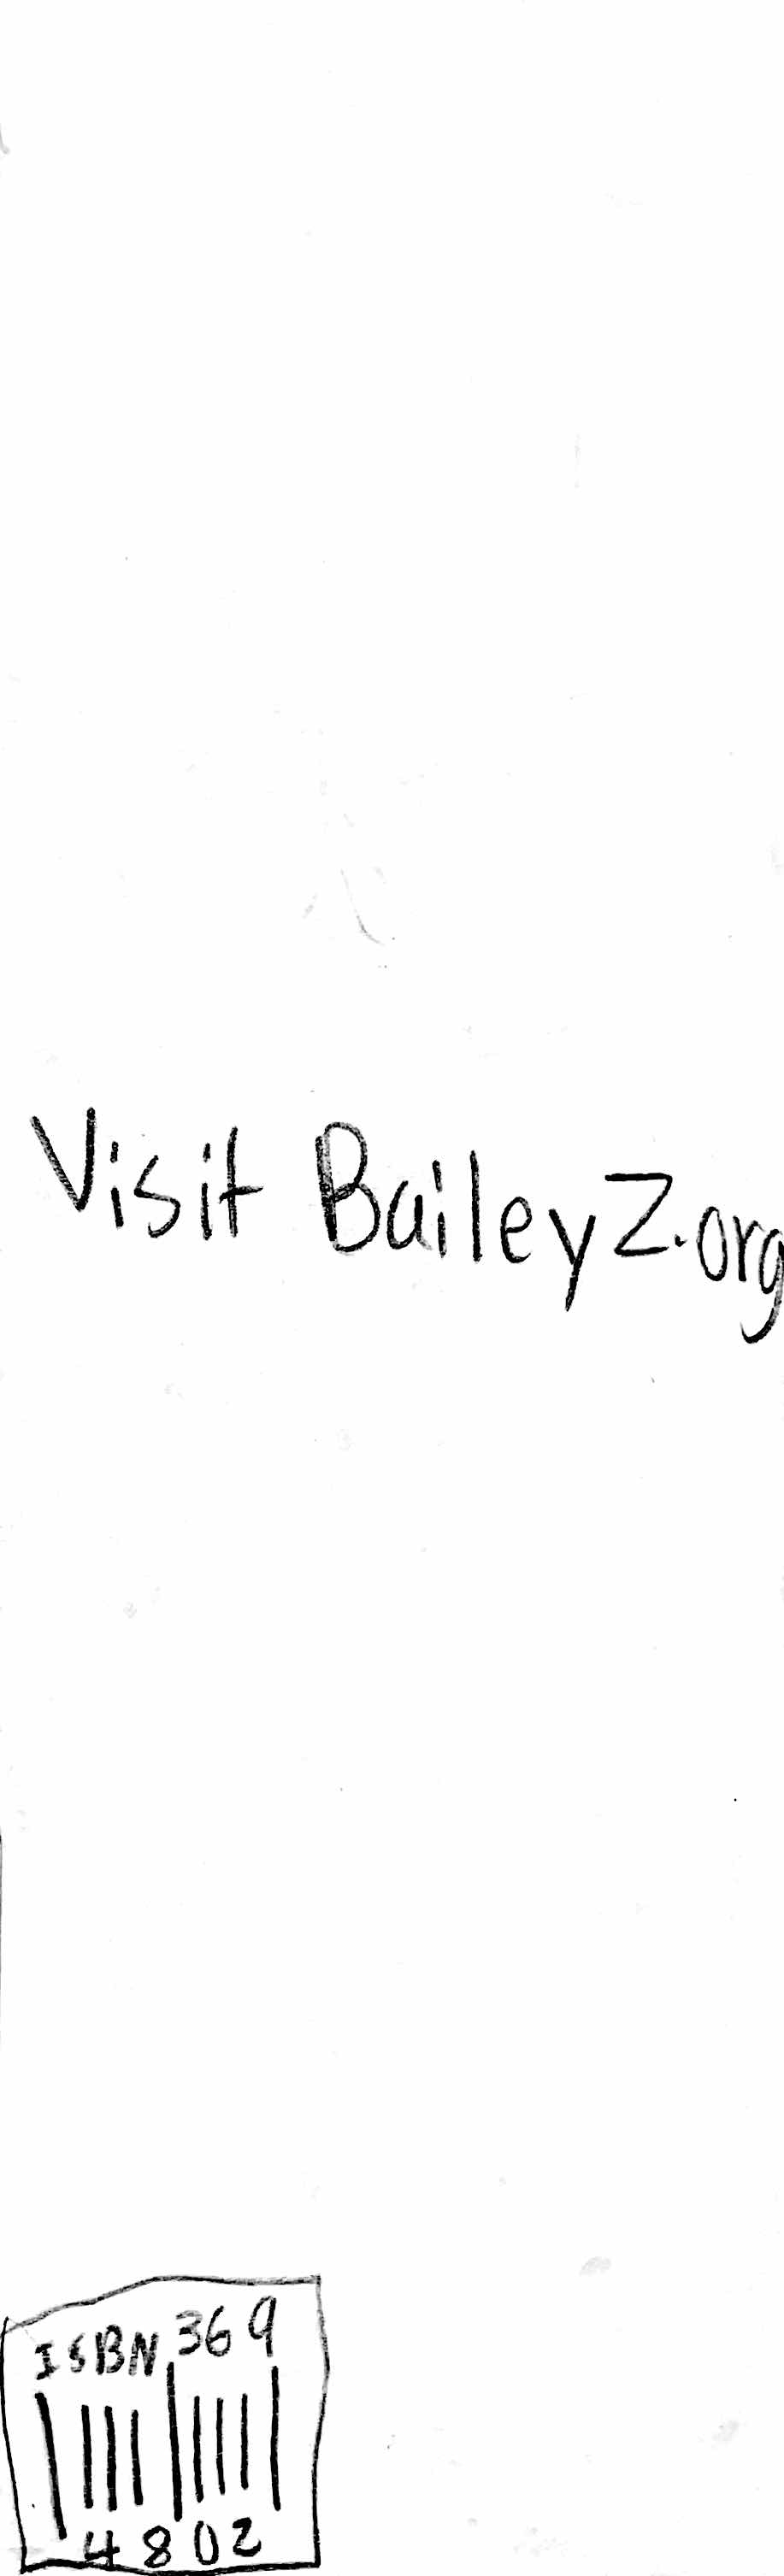 Visit BaileyZ.org
ISBN 369
4802